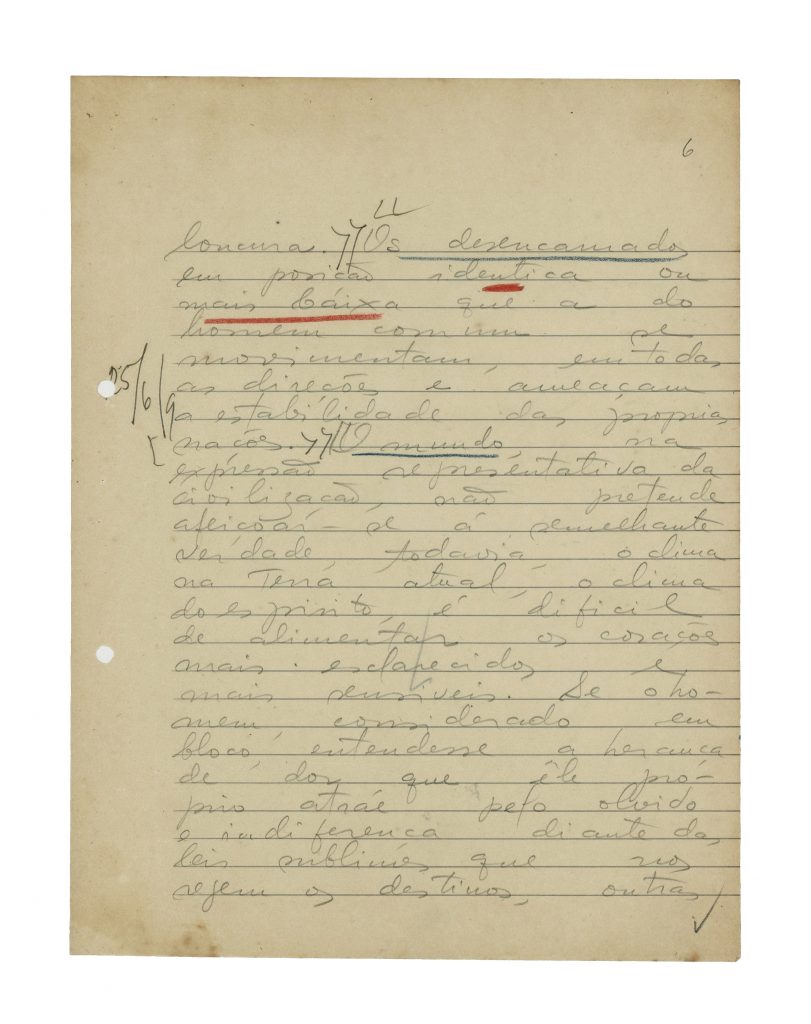 6
loucura. Os desencarnados
em posição identica ou
mais báixa que a do
homem comum se
movimentam, em todas
as direções e ameaçam
25/6/9
a estabilidade das proprias
nações. O mundo, na
expressão representativa da
civilização, não pretende
afeiçoar-se á semelhante
verdade, todavia, o clima
na Terra atual, o clima
do espirito, é dificil
de alimentar os corações
mais esclarecidos e
mais sensiveis. Se o ho-
mem considerado em
bloco, entendesse a herança
de dor que êle pró-
prio atráe pelo olvido
e indiferença diante das
leis sublimes que nos
regem os destinos, outras